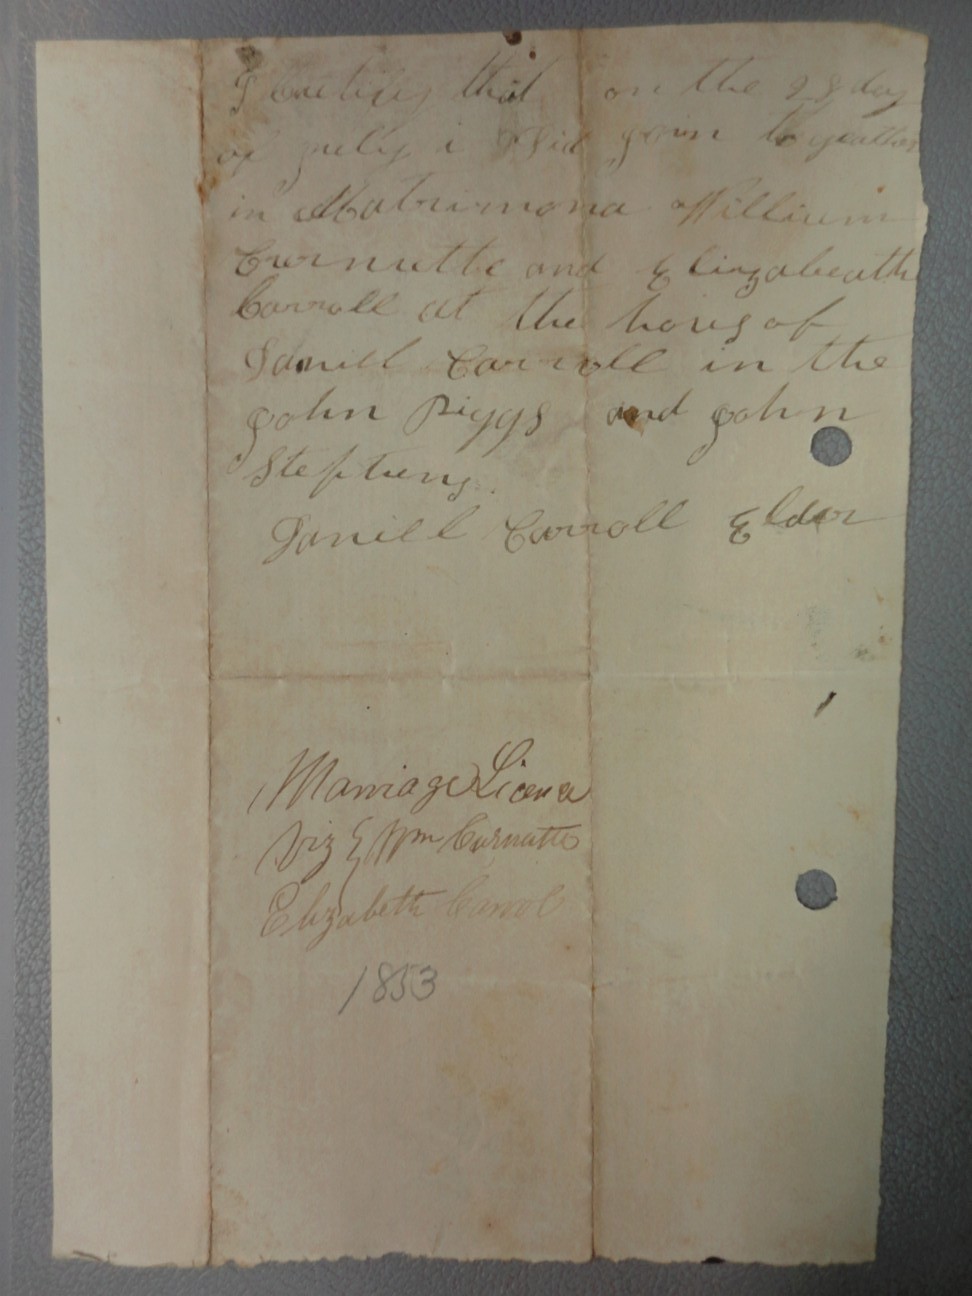 I Certify that on the 28 day
of july i Did join to geather
in Matrimona William
Curnutte and Elizabeath
Carroll at the hous of
Daniel Carroll in the
john Riggs and john
Stephens
Daniell Carroll Elder
Marriage Licence
Viz } Wm Curnutte
Elizabeth Carrol
1853